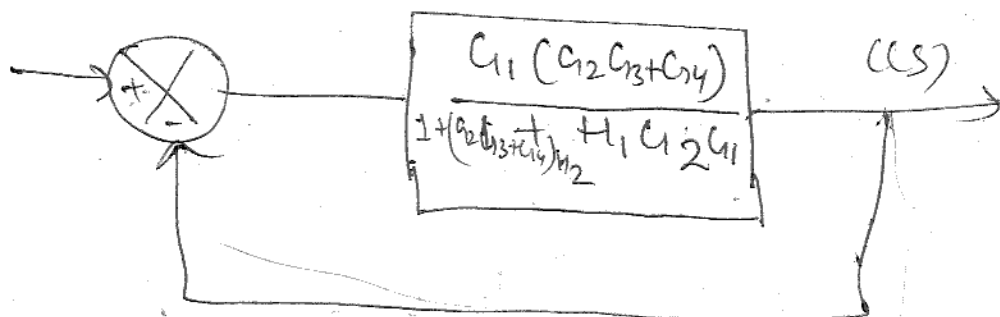 G1 (G2 G3 + G4)
C(S)
+
1 + (G2 G3 + G4) H2 + H1 G2 G1
-